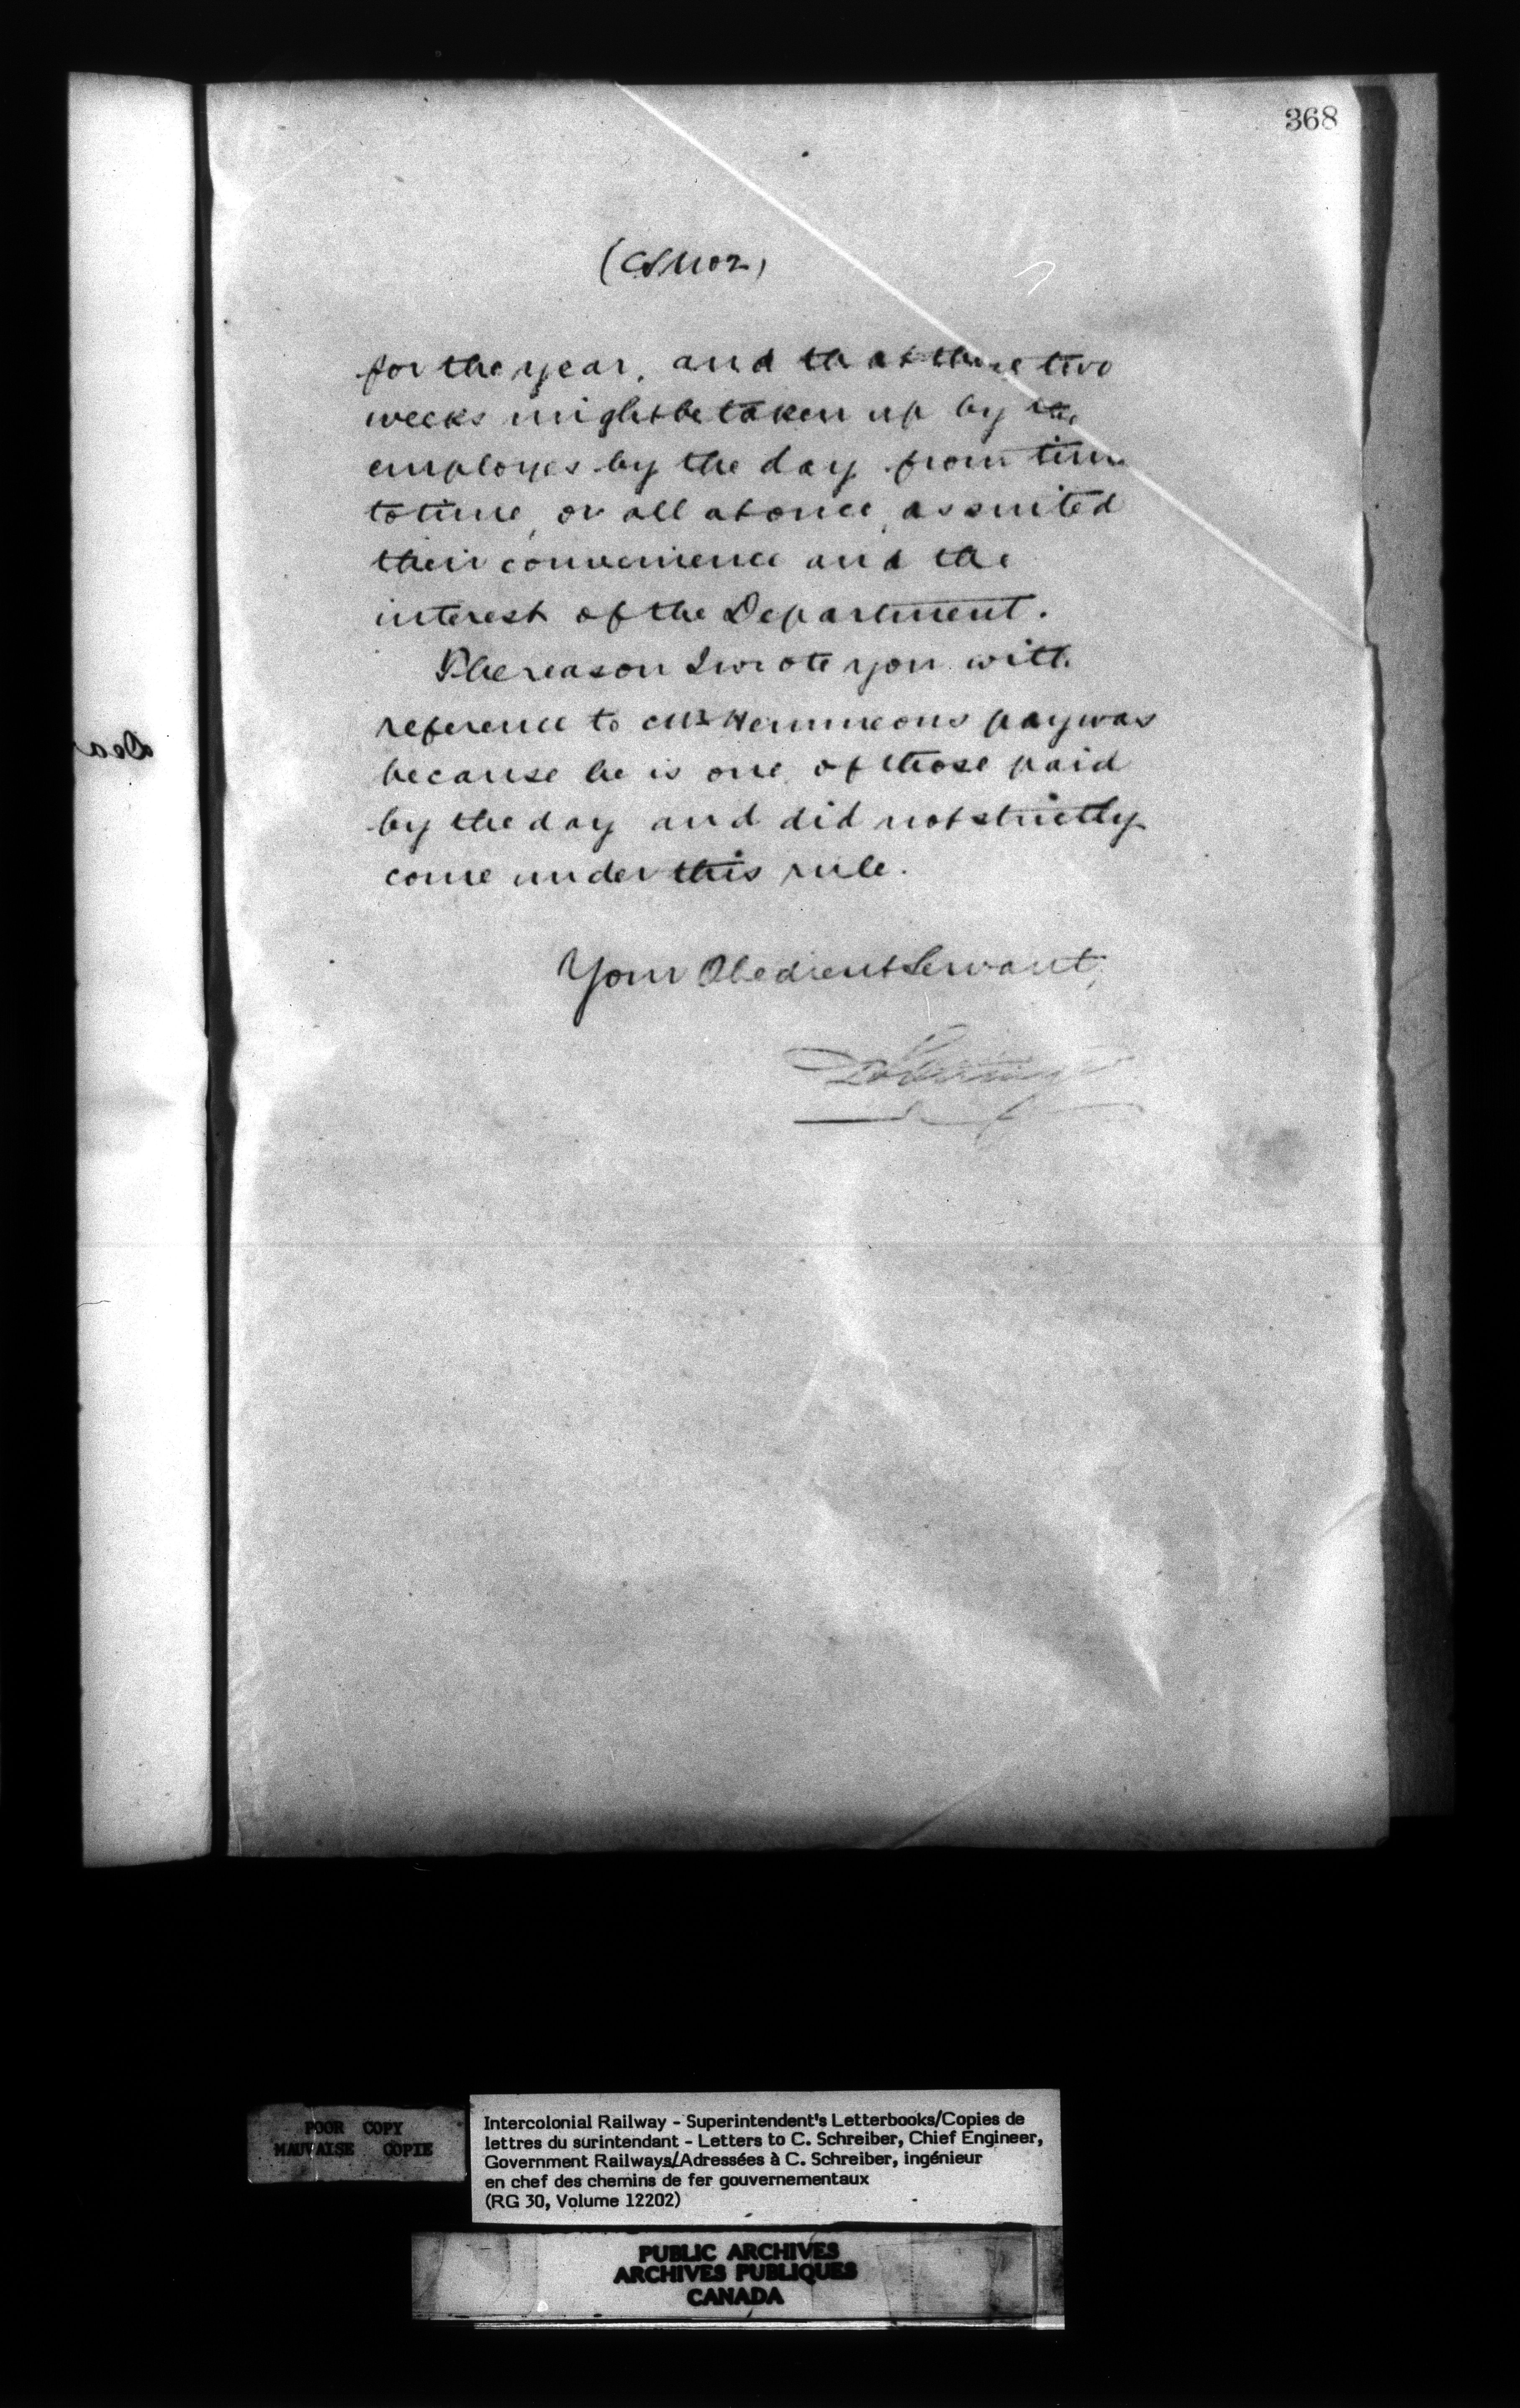 368
for the year, and that these two
weeks might be taken up by the
employes by the day from time
to time, or all at once, as suited
their convenience and the
interest of the Department.
The reason I wrote you with
reference to Mr Hemmeons pay was
because he is one of those paid
by the day and did not strictly
come under this rule.
Your Obedient Servant,
POOR COPY
MAUVAISE COPIE
Intercolonial Railway - Superintendent's Letterbooks/Copies de
lettres du surintendant - Letters to C. Schreiber, Chief Engineer,
Government Railways/Adressées à C. Schreiber, ingénieur
en chef des chemins de fer gouvernementaux
(RG 30, Volume 12202)
PUBLIC ARCHIVES
ARCHIVES PUBLIQUES
CANADA